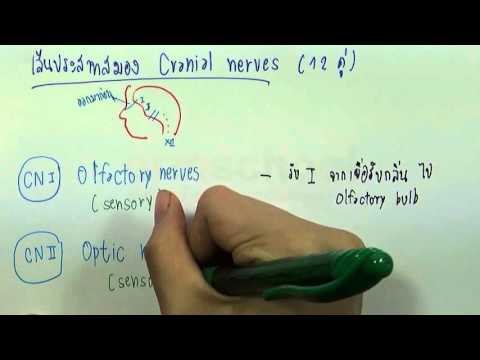 เส้นประสาทสมอง Cranial nerves (12 คู่)
ออกมาก่อน
I
XII
CN I Olfactory nerves
(sensory)
- รับ I จากเยื่อรับกลิ่น ไป
Olfactory bulb
CN II Optic
(sensory